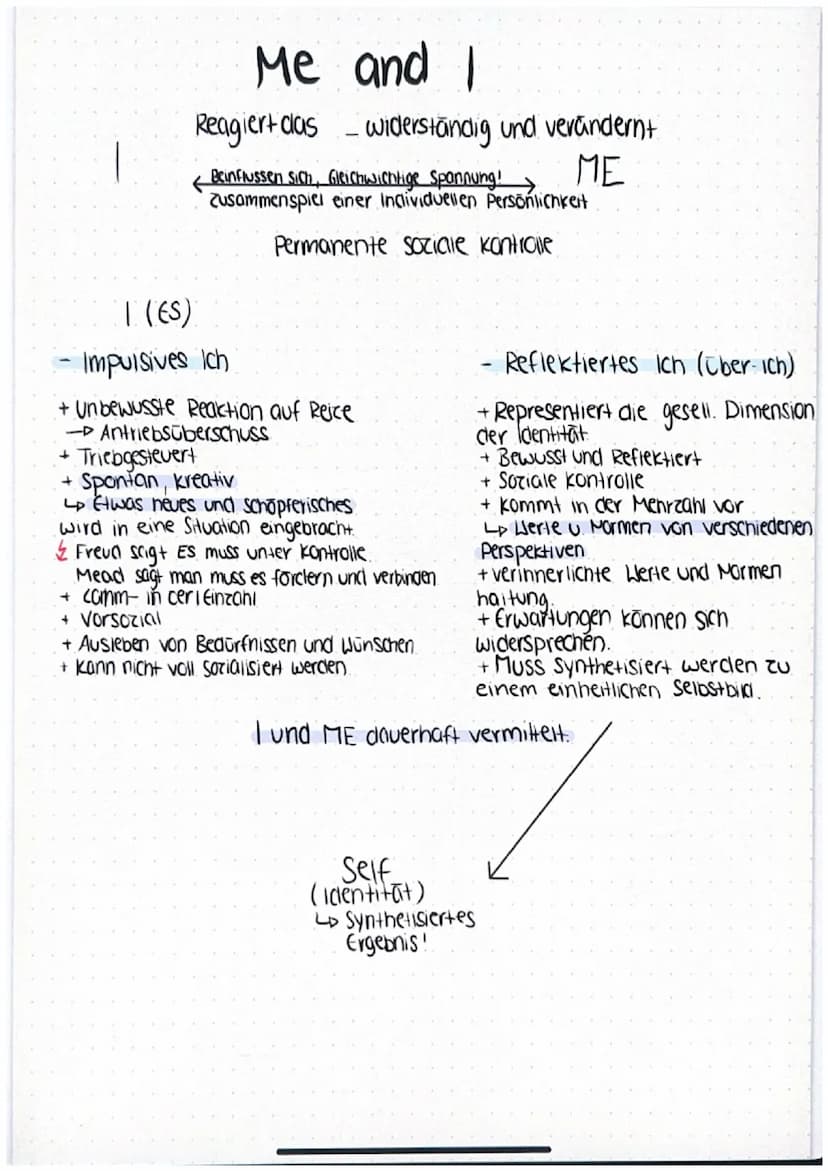 Me and I
Reagiert das _ widerständig und verändernt
I
ME
Beinflussen sich, Gleichwichtige Spannung!
Zusammenspiel einer Individuellen Persönlichkeit
Permanente soziale kontrolle
I (ES)
- Impulsives Ich
+ Unbewusste Reaktion auf Reize
→ Antriebsüberschuss
+ Triebgesteuert
+ Spontan, kreativ
↳ Etwas neues und schöpferisches
wird in eine Situation eingebracht.
Freud sagt ES muss unter kontrolle.
Mead sagt man muss es fördern und verbinden
+ in der Einzahl
+ Vorsozial
+ Ausleben von Bedürfnissen und Wünschen
+ kann nicht voll sozialisiert werden
- Reflektiertes Ich (Über-ich)
+ Representiert die gesell. Dimension
der Identität
+ Bewusst und Reflektiert
+ Soziale kontrolle
+ kommt in der Mehrzahl vor
↳ Werte u. Normen von verschiedenen
Perspektiven
+ verinnerlichte Werte und Normen
haltung.
+ Erwartungen können sich
widersprechen.
+ Muss Synthetisiert werden zu
einem einheitlichen Selbstbild.
I und ME dauerhaft vermittelt.
Self
(identität)
↳ Synthetisiertes
Ergebnis!